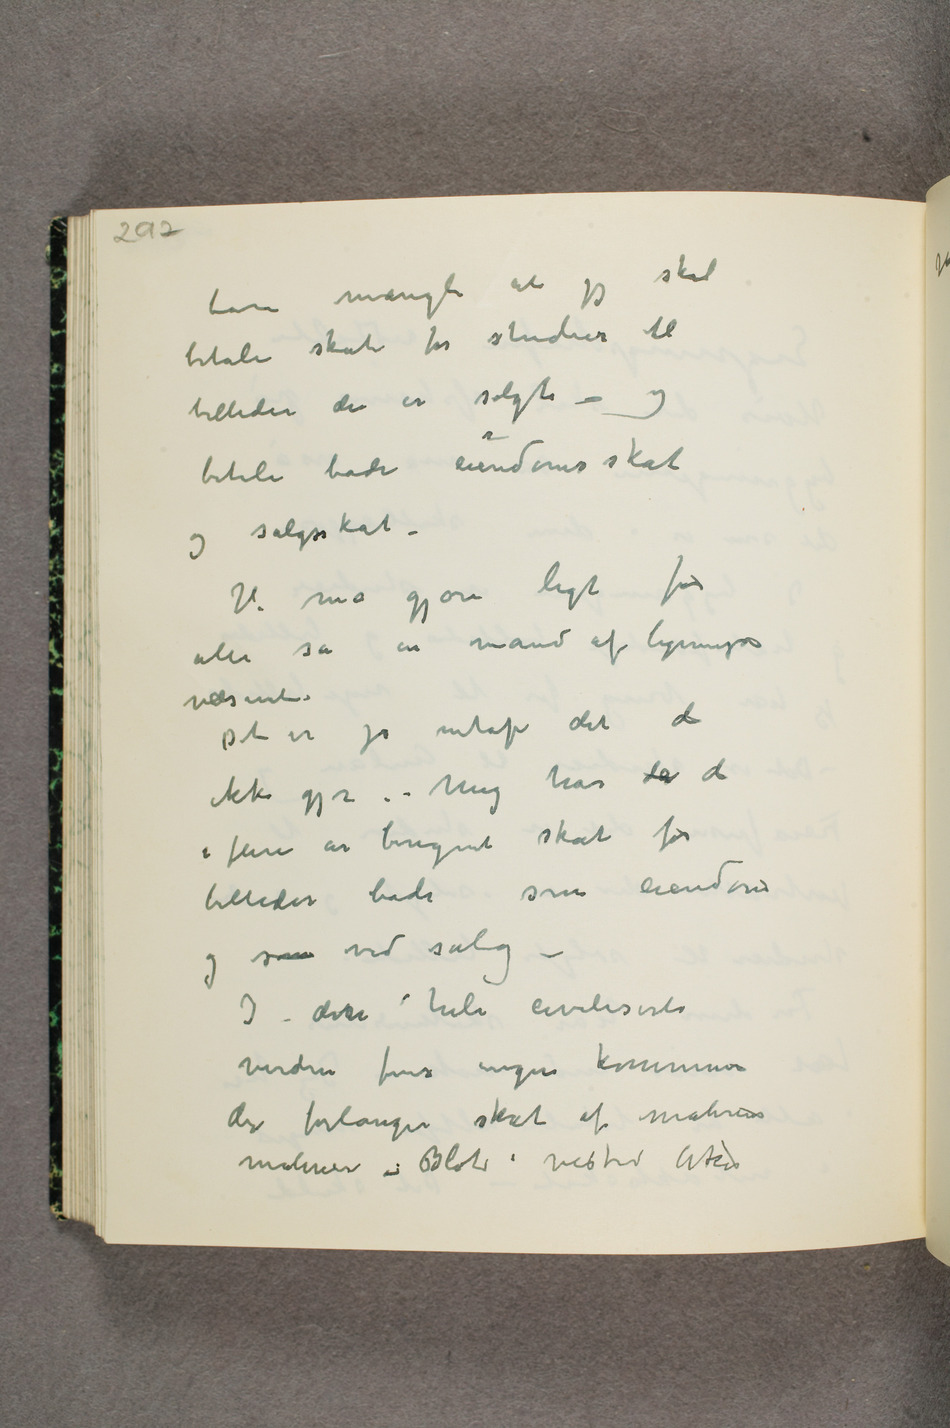 292
bare mangle at jeg skal
betale skat for studier til
billeder der er solgte – og
betale både eiendomsskat
og salgsskat –
De må gjøre ligt for
alle sa en mand af lignings
væsenet.
Det er jo netop det de
ikke gjør .. Mig har de de
i flere år beregnet skat for
billeder både som eiendom
og som ved salg –
I den hele civiliserte
verden fins ingen kommune
der forlanger skat af maleres
malerier – Blot i vestre Aker